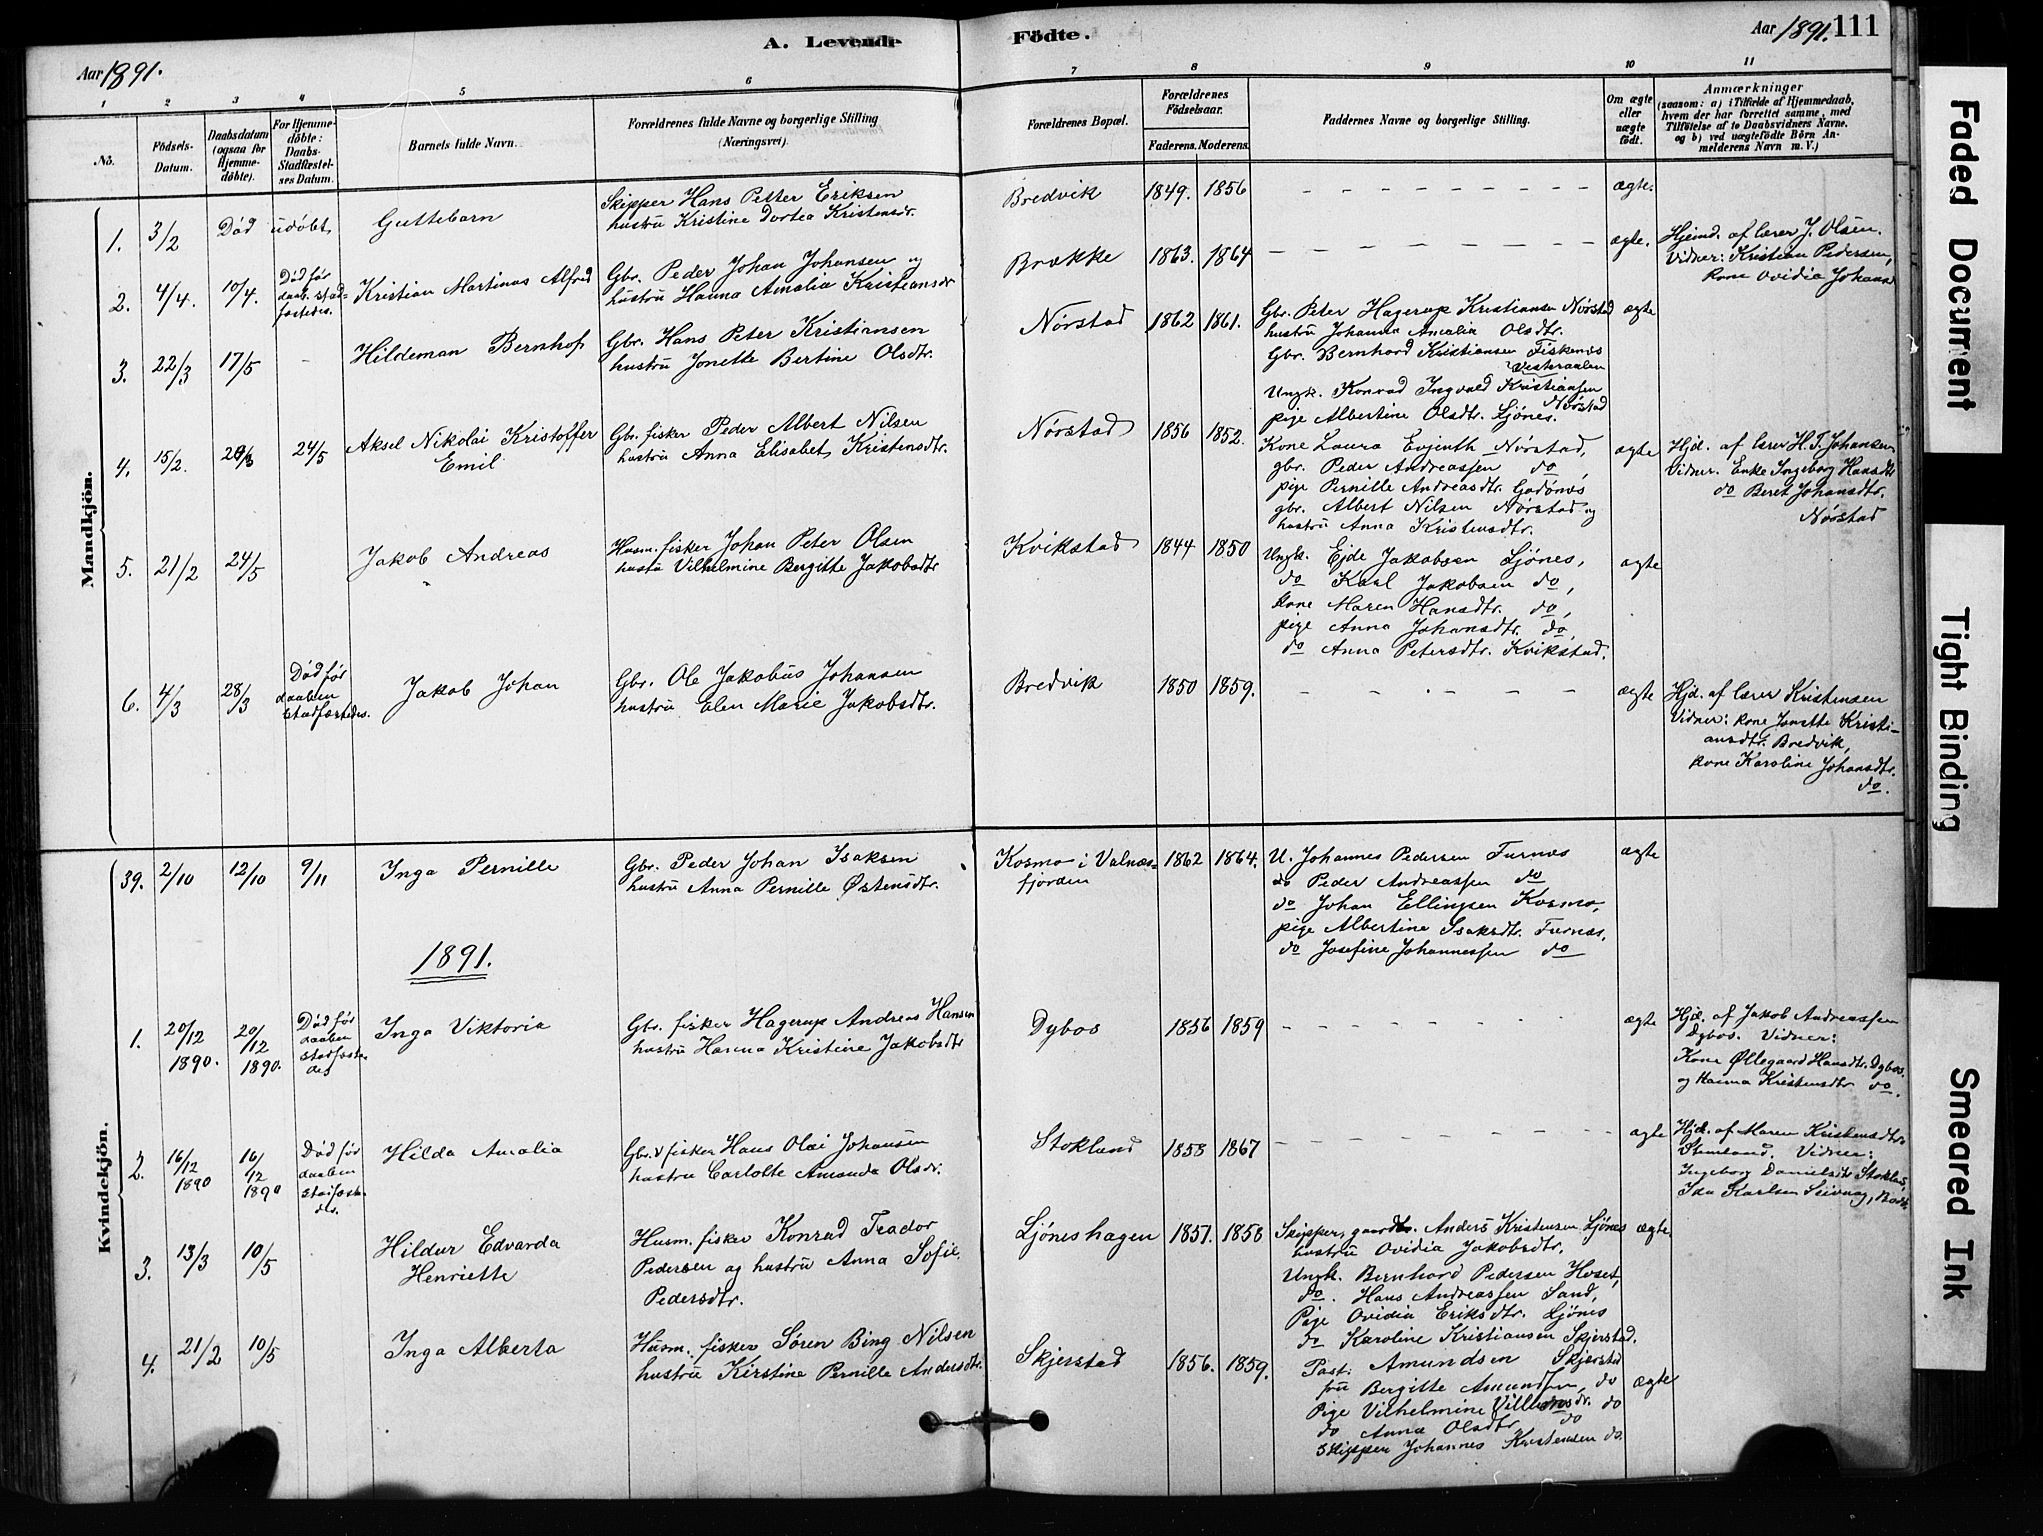 A. Levende Födte.
Aar 1891.
Aar 1891. 111
1 2 3 4 5 6 7 8 9 10 11
No.
Födsels-Datum.
Daabsdatum (ogsaa for Hjemme-döbte).
For Hjemme-döbte: Daabs-Stadfæstel-ses Datum.
Barnets fulde Navn.
Forældrenes fulde Navne og borgerlige Stilling (Næringsvei).
Forældrenes Bopæl.
Forældrenes Födselsaar.
Faderens. Moderens.
Faddernes Navne og borgerlige Stilling.
Om ægte eller uægte födt.
Anmærkninger
(saasom: a) i Tilfælde af Hjemmedaab, hvem der har forrettet samme, med Tilföielse af to Daabsvidners Navne. og b) ved uægtefödte Börn Anmelderens Navn m. V.)
Mandkjön.
1. 3/2 Död udöbt Guttebarn
Skipper Hans Petter Eriksen
hustru Kristine Dortea Kristensdr.
Bredvik 1849. 1856 ægte.
2. 4/4. 10/4. Död før daab. stadfæstedes. Kristian Martinus Alfred
Gbr. Peder Johan Johansen og
hustru Hanna Amalia Kristiansdr
Brække 1863. 1864 ægte.
Hjemd. af lærer J. Olsen.
Vidner: Kristian Pedersen,
Kone Ovidia Johansd
3. 22/3 17/5 - Hildeman Bernhof
Gbr. Hans Peter Kristiansen
hustru Jonette Bertine Olsdtr.
Nörstad 1862 1861.
Gbr. Peter Hagerup Kristiansen Nörstad
hustru Johanna Amalia Olsdtr.
Gbr. Bernhard Kristiansen Fiskenes
Vesteraalen
Ungk. Konrad Ingvald Kristiansen
Nörstad
pige Albertine Olsdtr. Ljönes.
ægte
4. 15/2. 24/5 Aksel Nikolai Kristoffer
Emil
Gbr. fisker Peder Albert Nilsen
hustru Anna Elisabet Kristensdtr.
Nörstad 1856 1852.
Kone Laura Evjenth Nörstad,
gbr. Peder Andreassen do,
pige Pernille Andreasdtr. Godönes
gbr. Albert Nilsen Nörstad og
hustru Anna Kristensdtr.
ægte
Hjd. af lærer H. T. Johansen
Vidner. Enke Ingeborg Hansdtr
do Beret Johansdtr.
Nörstad
5. 21/2 24/5 Jakob Andreas
Husm. fisker Johan Peter Olsen
hustru Vilhelmine Bergitte Jakobsdtr
Kvikstad 1844 1850
Ungk. Ejde Jakobsen Ljönes,
do Karl Jakobsen do,
kone Maren Hansdtr. do,
pige Anna Johansdtr. do,
do Anna Petersdtr. Kvikstad.
ægte
6. 4/3 28/3 Död før daaben stadfæstedes. Jakob Johan
Gbr. Ole Jakobus Johansen
hustru Elen Marie Jakobsdtr.
Bredvik 1850 1859. ægte
Hjd. af lærer Kristensen
Vidner: kone Jonette Kristi-
ansdtr. Bredvik,
kone Karoline Johansdtr.
do.
39. 2/10 12/10 9/11 Inga Pernille
Gbr. Peder Johan Isaksen
hustru Anna Pernille Østensdtr.
Kosmo i Valnes-
fjorden 1862 1864.
U. Johannes Pedersen Furnes
do Peder Andreassen do
do Johan Ellingsen Kosmo,
pige Albertine Isaksdtr. Furnes,
do Josefine Johannessen do
ægte
1891.
Kvindekjön.
1. 20/12 1890. 20/12 1890. Död før daaben stadfæstedes Inga Viktoria
Gbr. fisker Hagerup Andreas Hansen
hustru Hanna Kristine Jakobsdtr
Dybos 1856 1859 ægte
Hjd. af Jakob Andreassen
Dybos. Vidner:
Kone Øllegaard Hansdtr. Dybos.
og Hanna Kristensdtr do.
2. 16/12 1890 16/12 1890 Död før daaben stadfæstedes. Hilda Amalia
Gbr. fisker Hans Olai Johansen
hustru Carlotte Amanda Olsdr.
Stokland 1858 1867 ægte
Hjd. af Maren Kristensdtr.
Vidner:
Ingeborg Danielsdtr Stokland,
Ida Karlsen
3. 13/3 10/5 Hildur Edvarda
Henriette
Husm. fisker Konrad Teador
Pedersen og hustru Anna Sofie
Pedersdtr.
Ljöneshagen 1857. 1858
Skipper, gaardbr. Anders Kristensen Ljönes
hustru Ovidia Jakobsdtr.
Ungk. Bernhard Pedersen Hoset,
do. Hans Andreassen Sand,
Pige Ovidia Eriksdtr. Ljönes
do Karoline Kristiansen Skjerstad.
ægte
4. 21/2 10/5 Inga Alberta
Husm. fisker Sören Bing Nilsen
hustru Kirstine Pernille Andersdtr.
Skjerstad 1856. 1859.
Past. Amundsen Skjerstad
fru Bergitte Amundsen, do
Pige Vilhelmine do
do Anna Olsdtr. do
Skipper Johannes Kristensen do.
ægte
Faded Document
Tight Binding
Smeared Ink